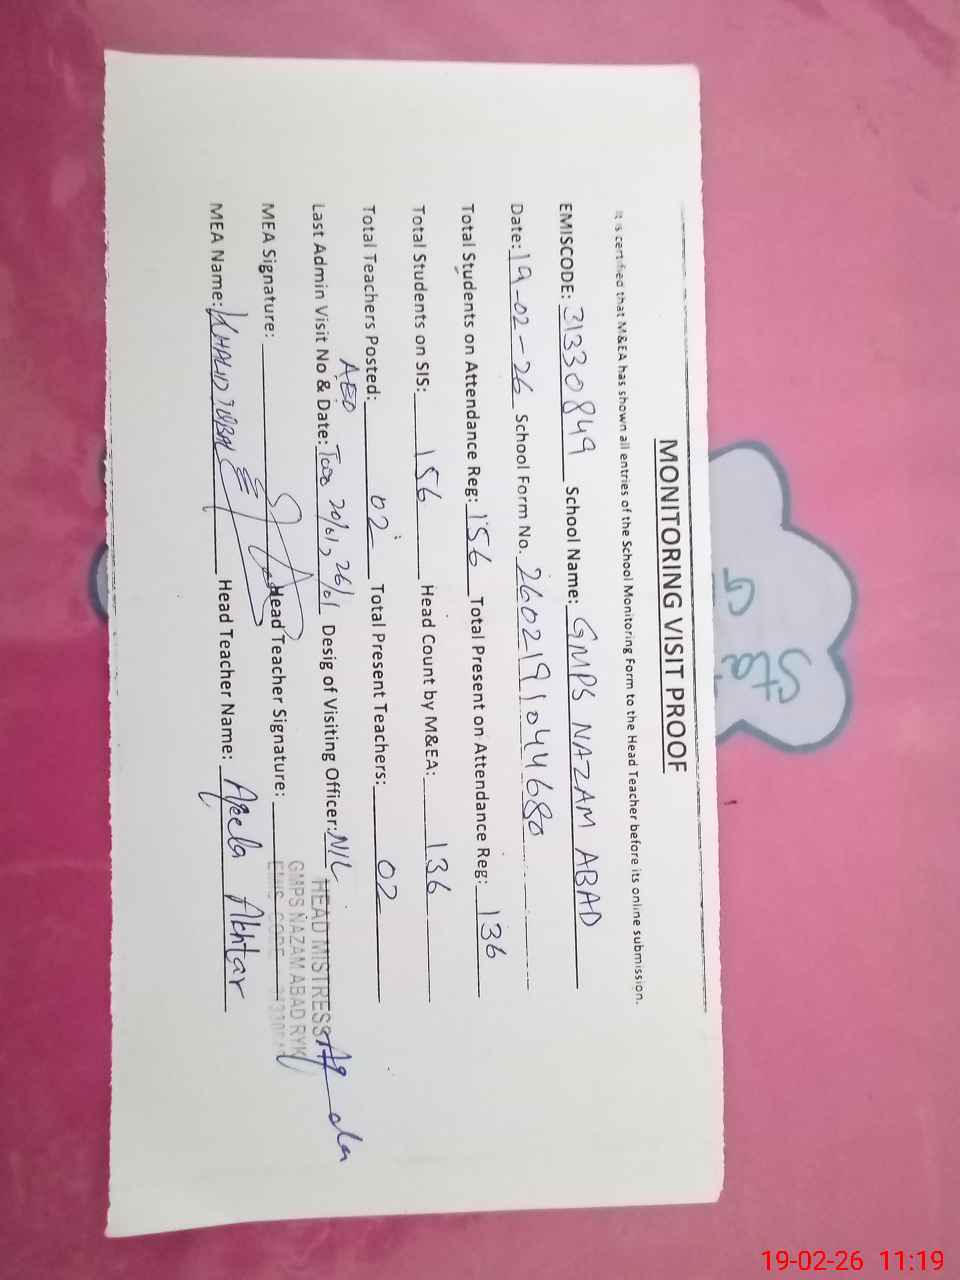 MONITORING VISIT PROOF
It is certified that M&EA has shown all entries of the School Monitoring Form to the Head Teacher before its online submission.
EMISCODE: 31330849 School Name: GMPS NAZAM ABAD
Date: 19-02-26 School Form No. 2602191044680
Total Students on Attendance Reg: 156 Total Present on Attendance Reg: 136
Total Students on SIS: 156 Head Count by M&EA: 136
Total Teachers Posted: 02 Total Present Teachers: 02
AEO
Last Admin Visit No & Date: Two 20/01, 26/01 Desig of Visiting Officer: NIL
MEA Signature: Head Teacher Signature:
HEAD MISTRESS
GMPS NAZAM ABAD RYK
EMIS CODE
MEA Name: KHALID IQBAL Head Teacher Name: Aqeela Akhtar
Sta
G
19-02-26 11:19